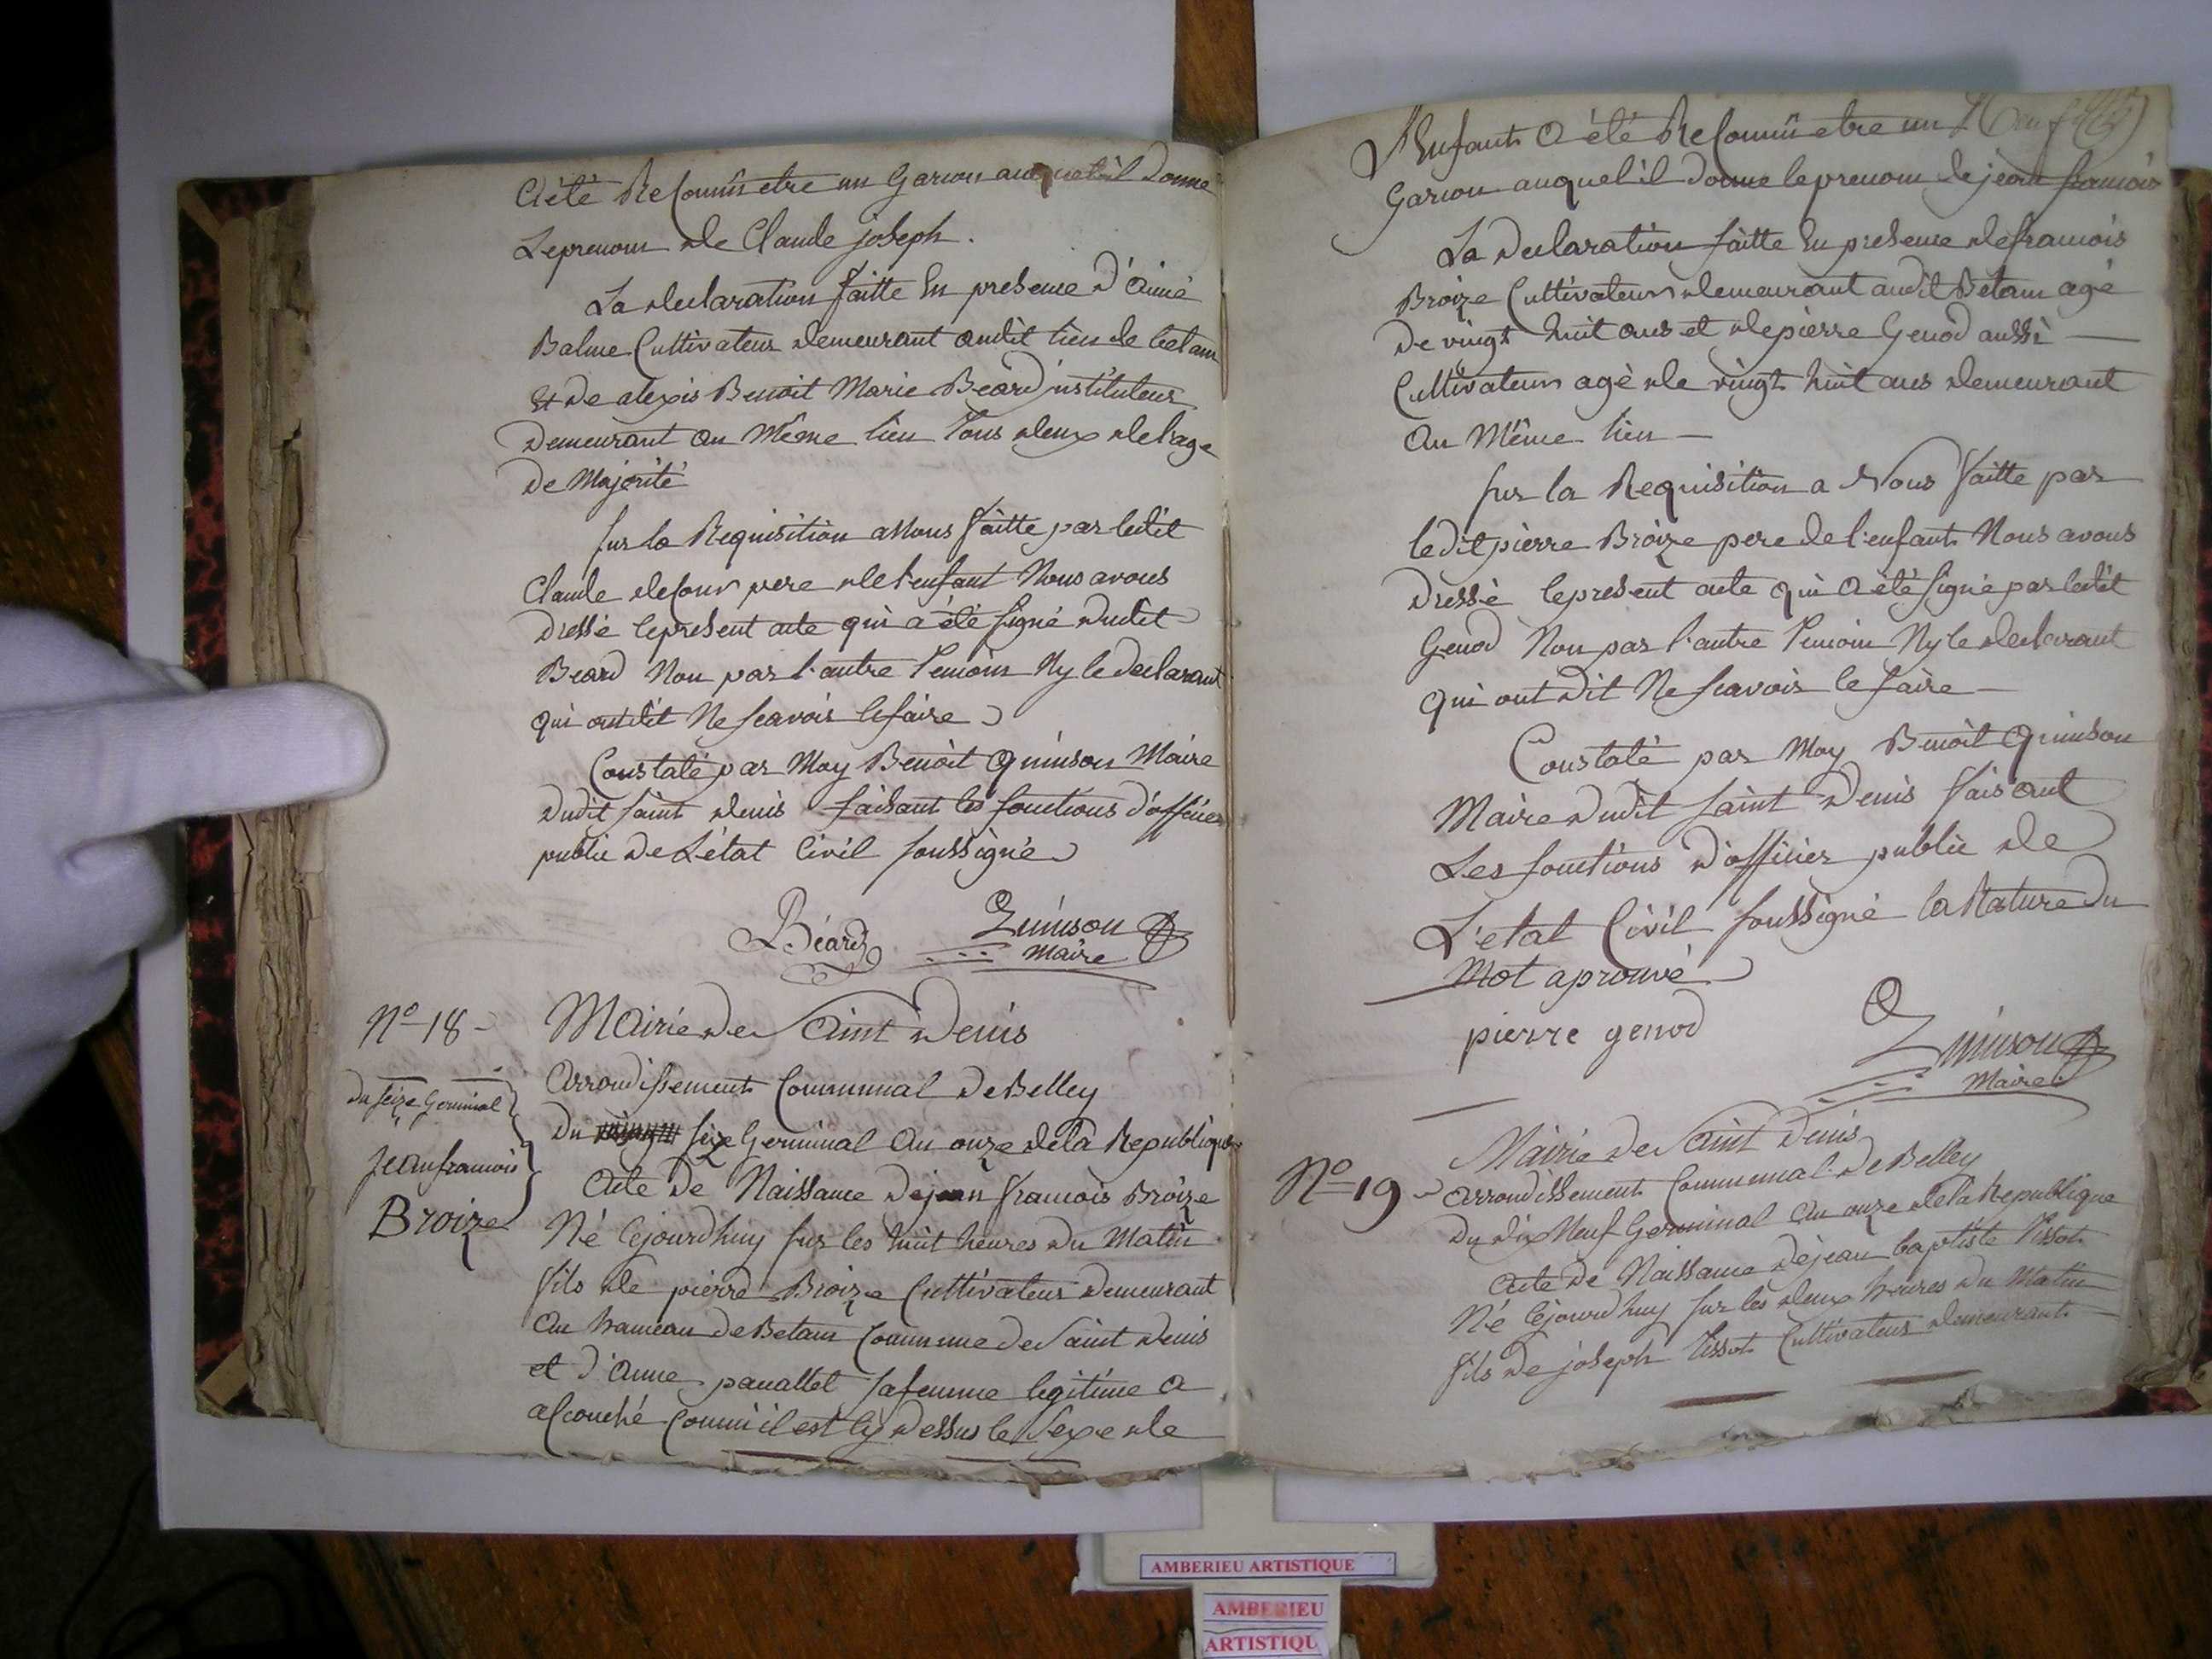 a été Reconnû etre un Garcon auquel il donne
Le prenom de Claude joseph.
La declaration faitte En presence d'aimé
Balme Cultivateur demeurant audit lieu de betam
Et de alexis Benoit Marie Béard instituteur
demeurant au Même lieu tous deux de l'age
de Majorité
sur la Requisition a Nous faitte par ledit
Claude pere de l'enfant Nous avons
dressé le present acte qui a été signé dudit
Beard Non par l'autre temoin Ny le declarant
qui ont dit Ne scavoir le faire
Constaté par Moy Benoit Quinson Maire
dudit saint denis faisant les fonctions d'officier
public de L'état Civil soussigné
Béard Quinson
Maire
N° 18 -
du seize Germinal
jean francois
Broize
Mairie de Saint denis
arrondissement Communal de Belley
Du seize Germinal an onze de la Republique
Acte de Naissance de jean francois Broize
Né cejourdhuy sur les huit heures du Matin
fils de pierre Broize Cultivateur demeurant
au hameau de Betam Commune de Saint denis
et d'anne panallet sa femme legitime a
acouché Comm'il est Cy dessus le sexe de
l'Enfant a été Reconnû etre un
Garcon auquel il donne le prenom de jean francois
La declaration faitte En presence de francois
Broize Cultivateur demeurant audit Betam agé
de vingt huit ans et de pierre Genod aussi
Cultivateur agé de vingt huit ans demeurant
au Même lieu
sur la Requisition a Nous faitte par
ledit pierre Broize pere de l'enfant Nous avons
dressé le present acte qui a été signé par ledit
Genod Non par l'autre temoin Ny le declarant
qui ont dit Ne scavoir le faire
Constaté par Moy Benoit Quinson
Maire dudit saint denis faisant
Les fonctions d'officier public de
L'etat Civil soussigné la Rature du
Mot aprouvé
pierre genod Quinson
Maire
N° 19
Mairie de Saint denis
arrondissement Communal de Belley
Du dix Neuf Germinal an onze de la Republique
Acte de Naissance de jean baptiste Tissot
Né cejourdhuy sur les deux heures du Matin
fils de joseph Tissot Cultivateur demeurant
AMBERIEU ARTISTIQUE
AMBERIEU
ARTISTIQU